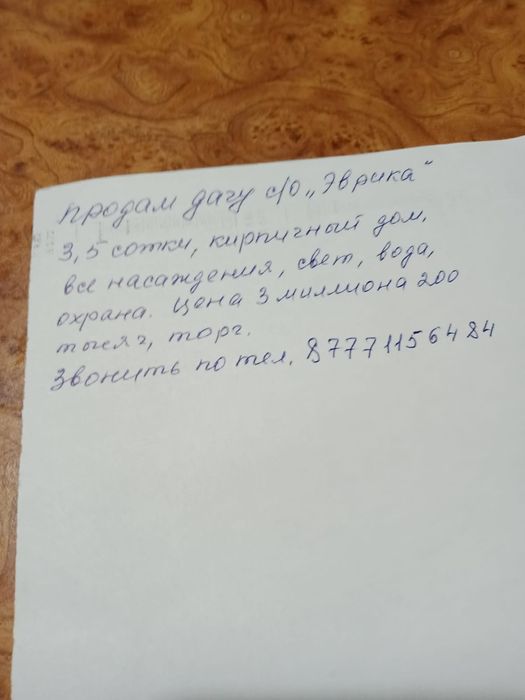 Продам дачу с/о „Эврика"
3,5 сотки, кирпичный дом,
все насаждения, свет, вода,
охрана. Цена 3 миллиона 200
тысяч, торг.
Звонить по тел. 87771156484